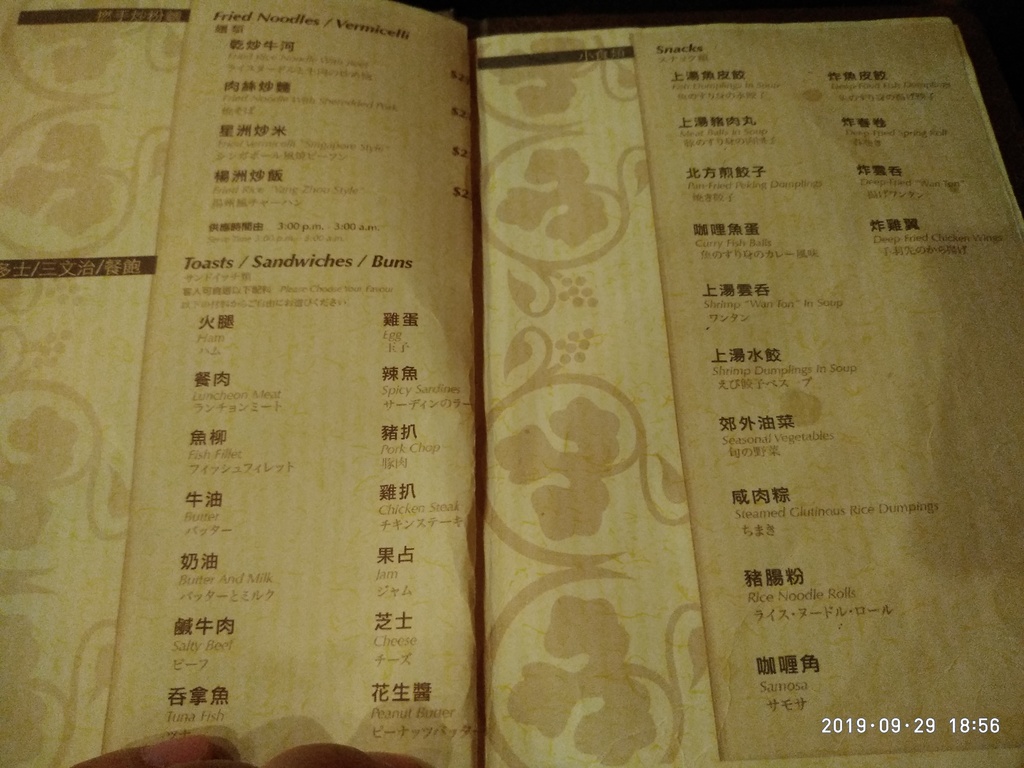 Fried Noodles / Vermicelli
麵類
乾炒牛河
Fried Rice Noodle With Beef
$2
肉絲炒麵
Fried Noodle With Shredded Pork
焼そば
$2
星洲炒米
Fried Vermicelli "Singapore Style"
シンガポール風焼ビーフン
$2
楊洲炒飯
Fried Rice "Yang Zhou Style"
揚州風チャーハン
$2
供應時間由 3:00 p.m. - 3:00 a.m.
多士/三文治/餐飽
Toasts / Sandwiches / Buns
サンドイッチ類
客人可自選以下配料 Please Choose Your Favour
火腿
Ham
ハム
餐肉
Luncheon Meat
ランチョンミート
魚柳
Fish Fillet
フィッシュフィレット
牛油
Butter
バッター
奶油
Butter And Milk
バッターとミルク
鹹牛肉
Salty Beef
ビーフ
吞拿魚
Tuna Fish
ツナ
雞蛋
Egg
玉子
辣魚
Spicy Sardines
サーディンのラー
豬扒
Pork Chop
豚肉
雞扒
Chicken Steak
チキンステーキ
果占
Jam
ジャム
芝士
Cheese
チーズ
花生醬
Peanut Butter
ピーナッツバッター
小食類
Snacks
スナック類
上湯魚皮餃
Fish Dumplings In Soup
魚のすり身の水餃子
上湯豬肉丸
Meat Balls In Soup
北方煎餃子
Pan-Fried Peking Dumplings
焼き餃子
咖哩魚蛋
Curry Fish Balls
魚のすり身のカレー風味
上湯雲吞
Shrimp "Wan Ton" In Soup
ワンタン
上湯水餃
Shrimp Dumplings In Soup
えび餃子ベスープ
郊外油菜
Seasonal Vegetables
旬の野菜
咸肉粽
Steamed Glutinous Rice Dumpings
ちまき
豬腸粉
Rice Noodle Rolls
ライス・ヌードル・ロール
咖喱角
Samosa
サモサ
炸魚皮餃
Deep-Fried Fish Dumplings
魚のすり身の揚げ餃子
炸春卷
Deep-Fried Spring Roll
春巻き
炸雲吞
Deep-Fried "Wan Ton"
揚げワンタン
炸雞翼
Deep-Fried Chicken Wings
手羽先のから揚げ
2019·09·29 18:56